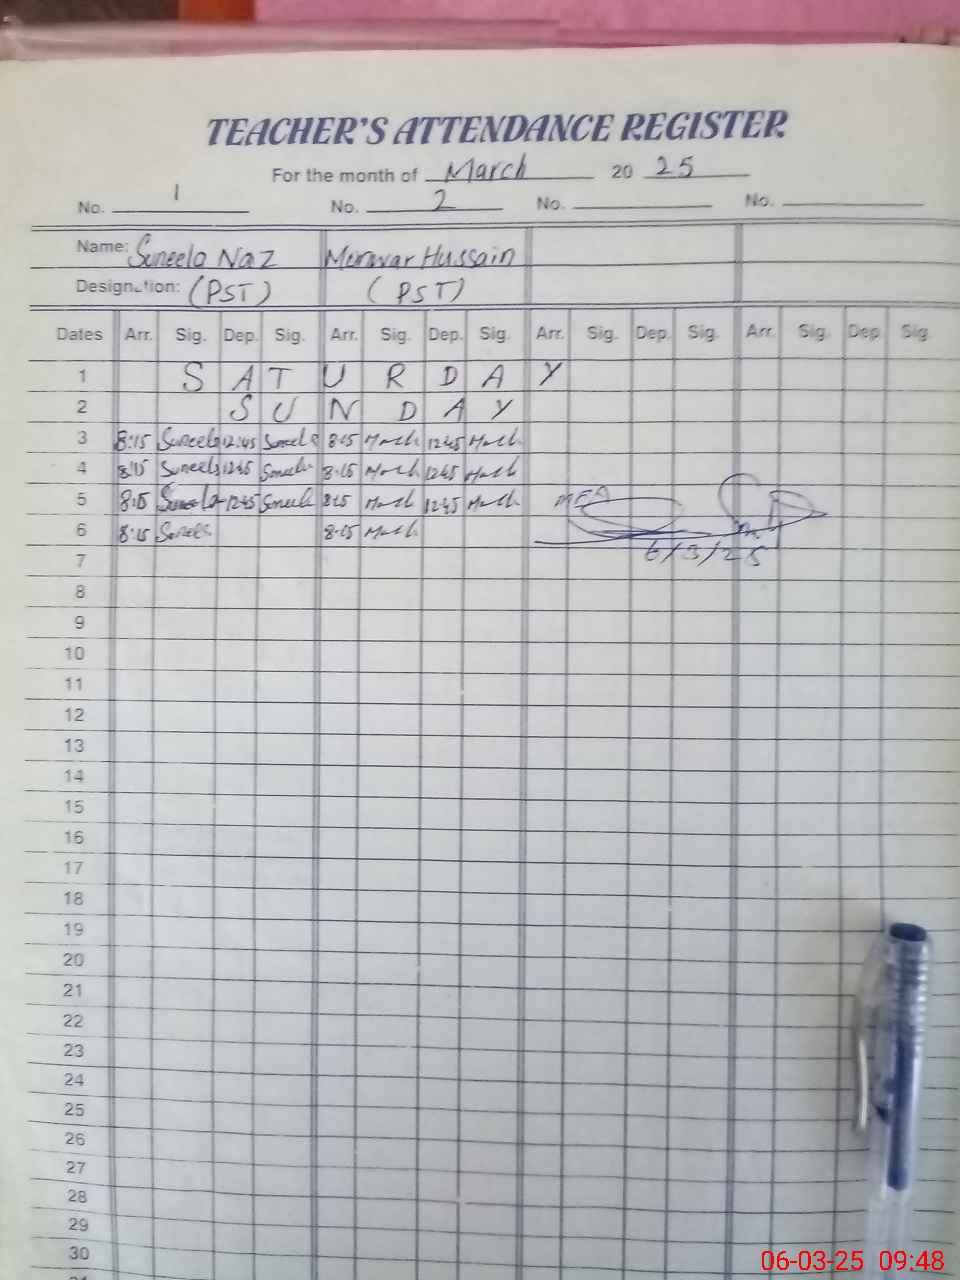 TEACHER'S ATTENDANCE REGISTER
For the month of March 20 25
No. 1 No. 2 No. No.
Name: Suneela Naz Hussain
Designation: (PST) (PST)
Dates Arr. Sig. Dep. Sig. Arr. Sig. Dep. Sig. Arr. Sig. Dep. Sig. Arr. Sig. Dep. Sig.
1 S A T U R D A Y
2 S U N D A Y
3 8:15 Suneela 12:45 Suneela 8:15 12:45
4 8:15 Suneela 12:45 Suneela 8:15 12:45
5 8:15 Suneela 12:45 Suneela 8:15 12:45 MEA
6 8:15 Suneela 8:15
6/3/25
7
8
9
10
11
12
13
14
15
16
17
18
19
20
21
22
23
24
25
26
27
28
29
30
06-03-25 09:48